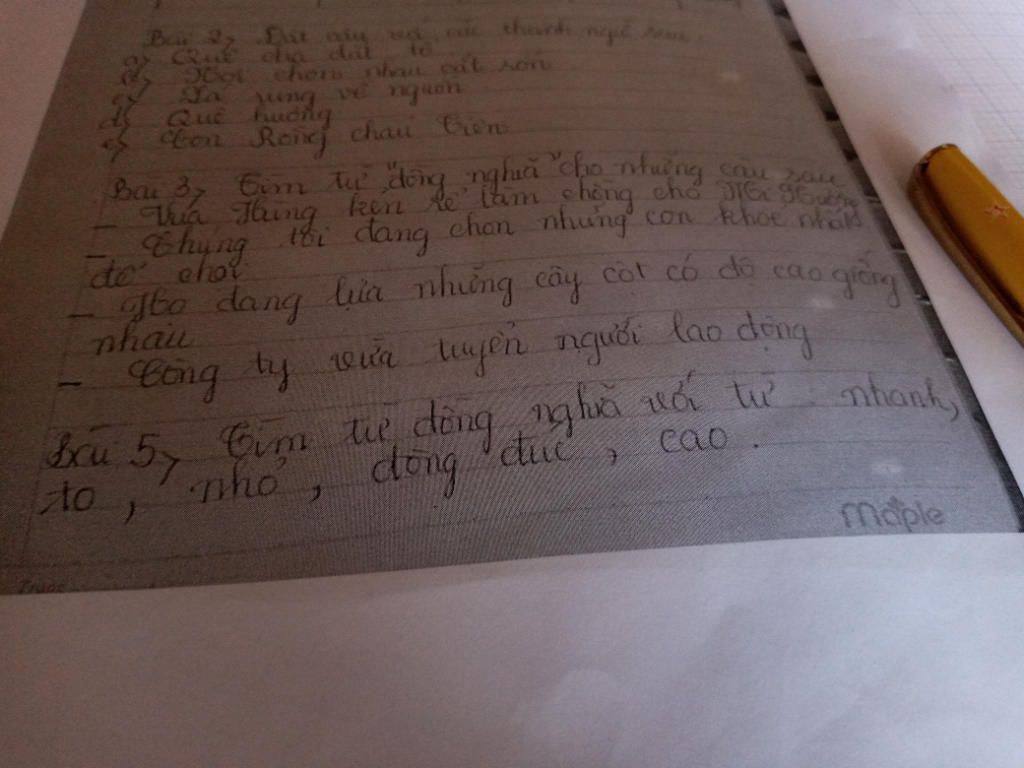 Bài 2, Đặt câu với các thành ngữ sau.
a, Quê cha đất tổ
b, Nơi chôn nhau cắt rốn
c, Lá rụng về nguồn
d, Quê hương
e, Con Rồng cháu Tiên
Bài 3, Tìm từ "đồng nghĩa" cho những câu sau
_ Vua Hùng kén rể làm chồng cho Mị Nương
_ Chúng tôi đang chọn những con khỏe nhất
để chơi
_ Họ đang lựa những cây cột có độ cao giống
nhau
_ Công ty vừa tuyển người lao động
Bài 5, Tìm từ đồng nghĩa với từ nhanh,
to, nhỏ, đông đúc, cao.
Maple